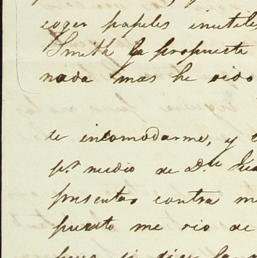 coger papeles inutiles
Smith la propuesta
nada mas he oido
te incomodarme, y
p.r medio de D.n
presentar contra m
puesto me rio de